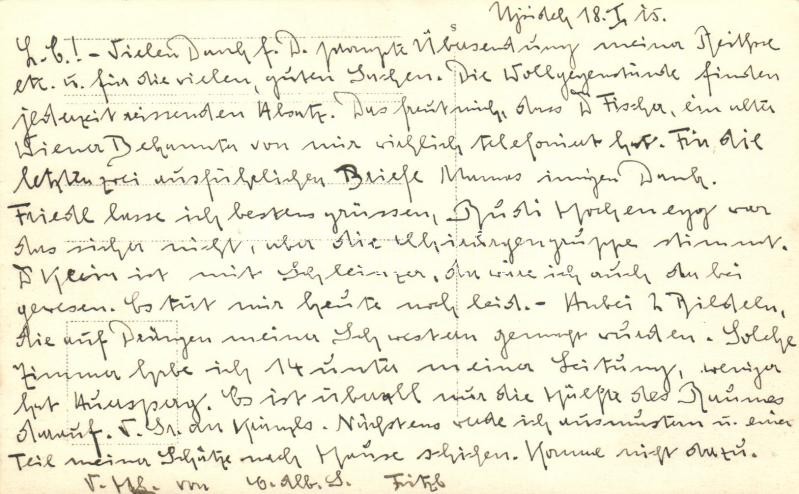 Ujvidek 18. I. 15.
L. E.! – Vielen Dank f. D. prompte Übersendung meiner Reithose
etc. u. für die vielen, guten Sachen. Die Wollgegenstände finden
jederzeit reissenden Absatz. Das freut mich, dass D Fischer, ein alter
Wiener Bekannter von mir richtig telefoniert hat. Für die
letzten zwei ausführlichen Briefe Mamas innigen Dank.
Friedl lasse ich bestens grüssen, Rudi Hochenegg war
das sicher nicht, aber die Chirurgengruppe stimmt.
D Klein ist mit Schlesinger, da wäre ich auch dabei
gewesen. Es tut mir heute noch leid. – Anbei 2 Bildeln,
die auf Drängen meiner Schwestern gemacht wurden. Solche
Zimmer habe ich 14 unter meiner Leitung, weniger
hat . Es ist überall nur die Hälfte des Raumes
darauf. V. Gr. an . Nächstens werde ich ausmustern u. einen
Teil meiner Schätze nach Hause schicken. Komme nicht dazu.
V. von